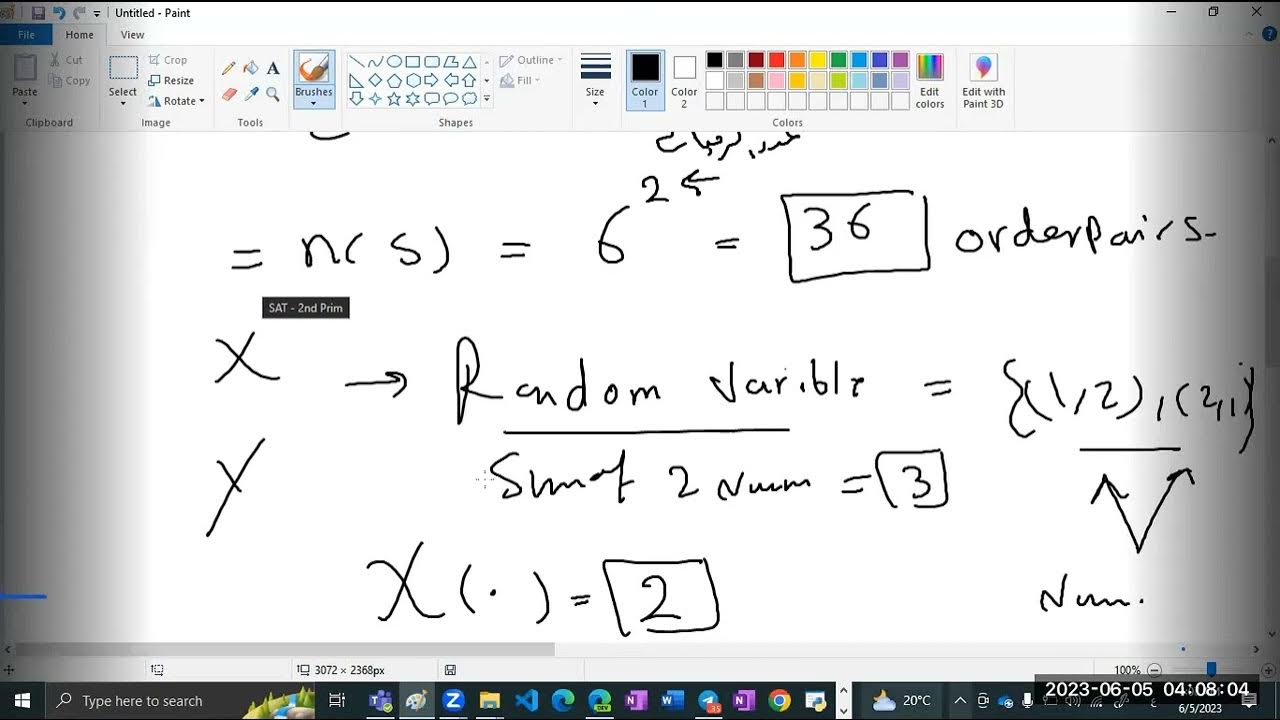 Untitled - Paint
File Home View
Paste Cut Copy Clipboard
Select Crop Resize Rotate Image
Tools
Brushes
Shapes Outline Fill
Size
Color 1 Color 2 Colors Edit colors
Edit with Paint 3D
2 ←
= n(S) = 6 = 36 orderpairs.
SAT - 2nd Prim
X → Random Varible = {(1,2),(2,1)}
y Sum of 2 Num = 3
X(.) = 2 Num.
3072 × 2368px 100%
Type here to search 20°C 2023-06-05 04:08:04
6/5/2023